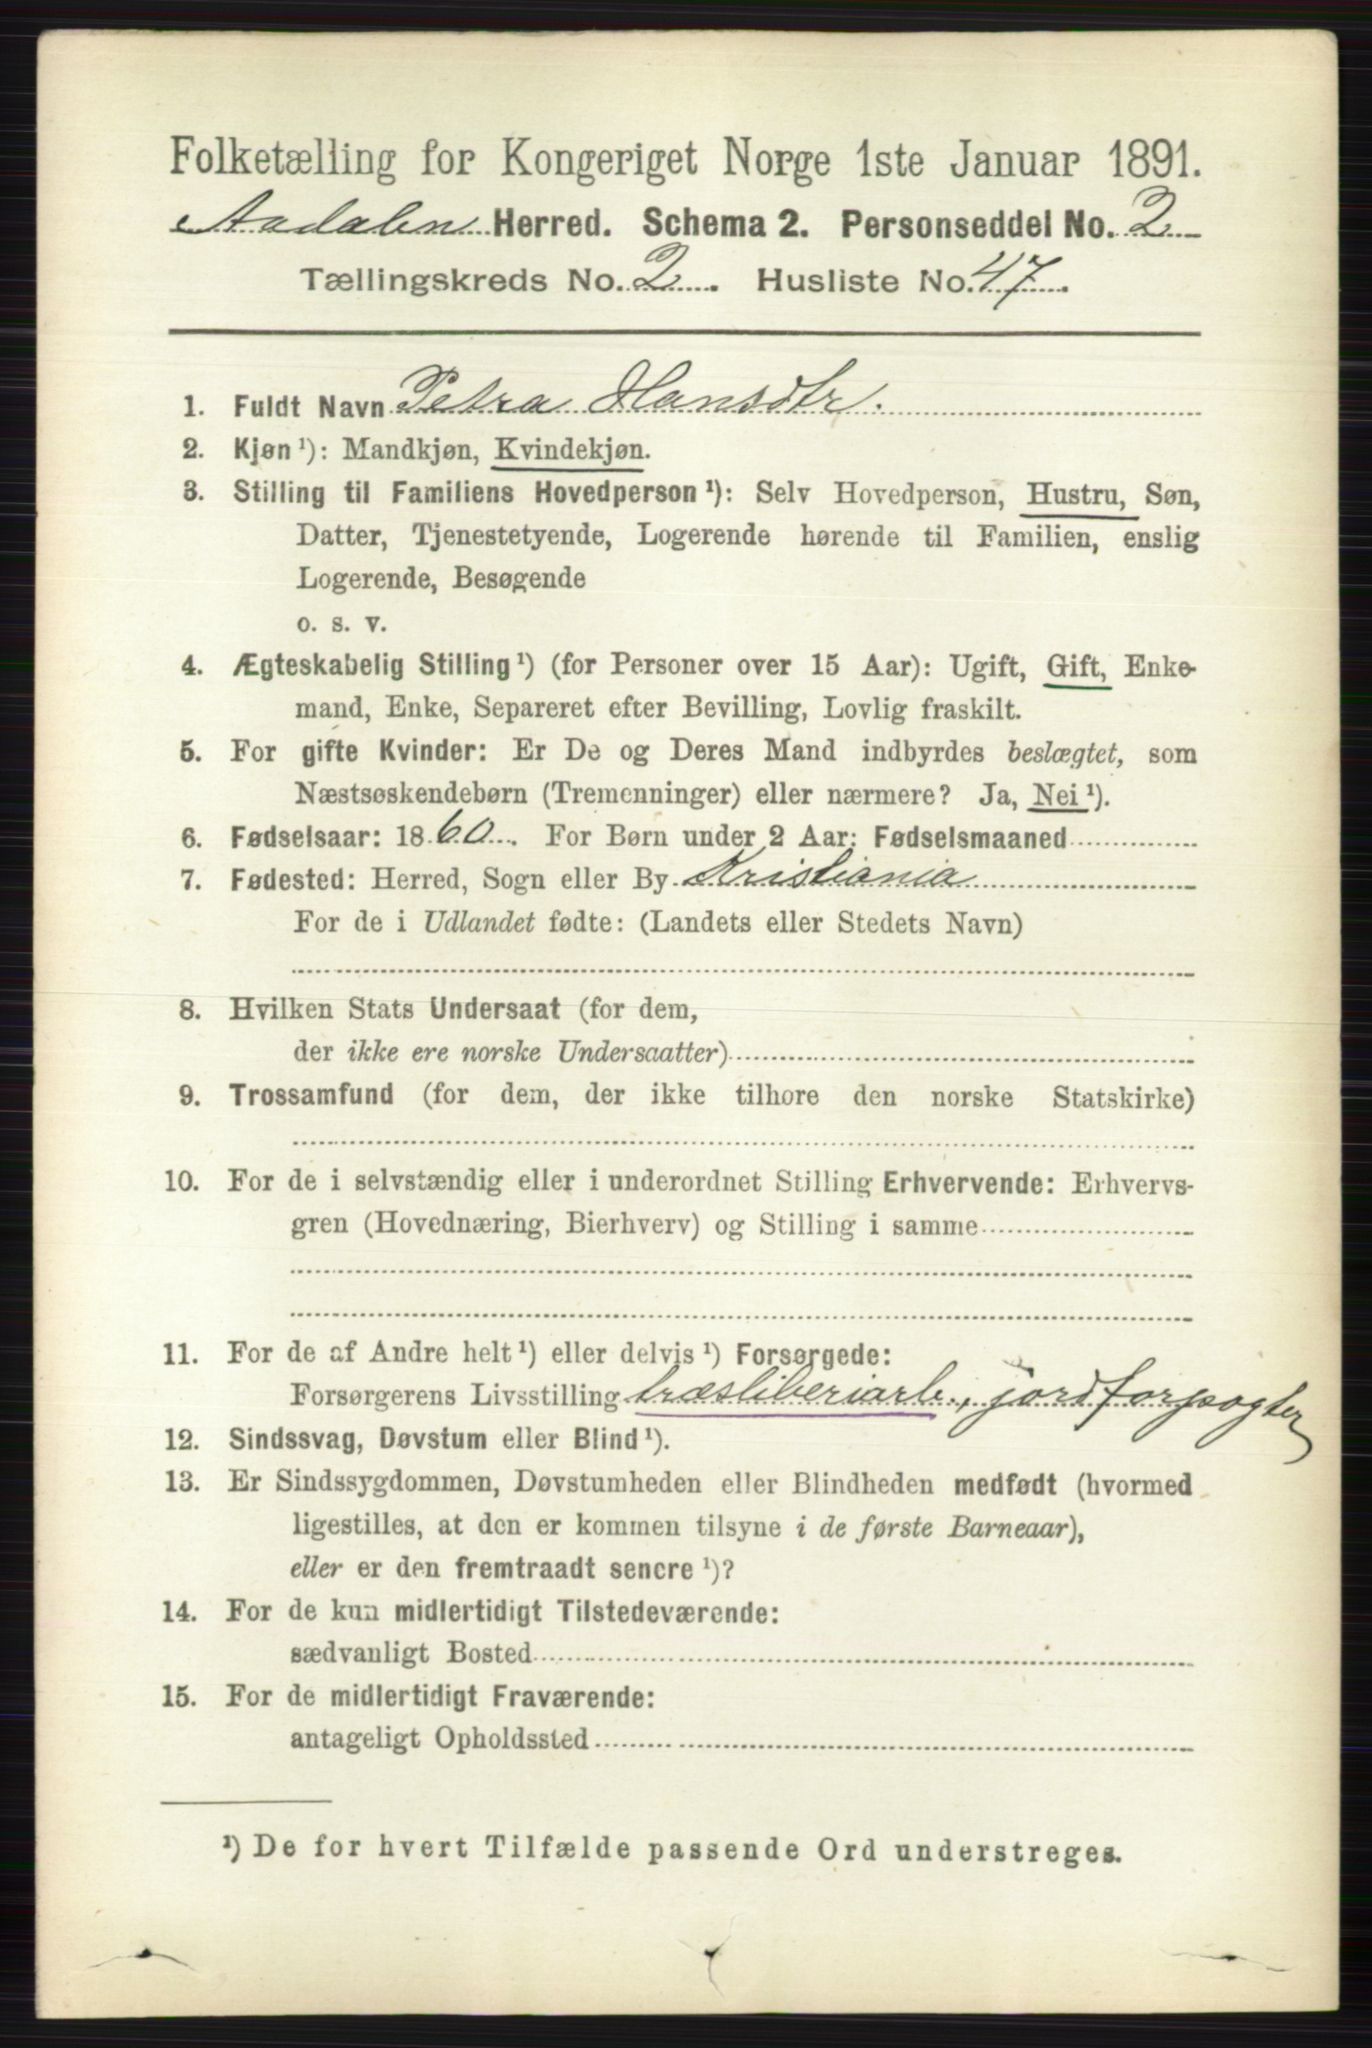 Folketælling for Kongeriget Norge 1ste Januar 1891.
Aadalen Herred. Schema 2. Personseddel No. 2
Tællingskreds No. 2. Husliste No. 47.
1. Fuldt Navn Petra Hansdtr.
2. Kjøn ¹): Mandkjøn, Kvindekjøn.
3. Stilling til Familiens Hovedperson ¹): Selv Hovedperson, Hustru, Søn,
Datter, Tjenestetyende, Logerende hørende til Familien, enslig
Logerende, Besøgende
o. s. v.
4. Ægteskabelig Stilling ¹) (for Personer over 15 Aar): Ugift, Gift, Enke-
mand, Enke, Separeret efter Bevilling, Lovlig fraskilt.
5. For gifte Kvinder: Er De og Deres Mand indbyrdes beslægtet, som
Næstsøskendebørn (Tremenninger) eller nærmere? Ja, Nei ¹).
6. Fødselsaar: 1860. For Børn under 2 Aar: Fødselsmaaned
7. Fødested: Herred, Sogn eller By Kristiania
For de i Udlandet fødte: (Landets eller Stedets Navn)
8. Hvilken Stats Undersaat (for dem,
der ikke ere norske Undersaatter)
9. Trossamfund (for dem, der ikke tilhøre den norske Statskirke)
10. For de i selvstændig eller i underordnet Stilling Erhvervende: Erhvervs-
gren (Hovednæring, Bierhverv) og Stilling i samme
11. For de af Andre helt ¹) eller delvis ¹) Forsørgede:
Forsørgerens Livsstilling træsliberiarb., jordforpagter
12. Sindssvag, Døvstum eller Blind ¹).
13. Er Sindssygdommen, Døvstumheden eller Blindheden medfødt (hvormed
ligestilles, at den er kommen tilsyne i de første Barneaar),
eller er den fremtraadt senere ¹)?
14. For de kun midlertidigt Tilstedeværende:
sædvanligt Bosted
15. For de midlertidigt Fraværende:
antageligt Opholdssted
¹) De for hvert Tilfælde passende Ord understreges.